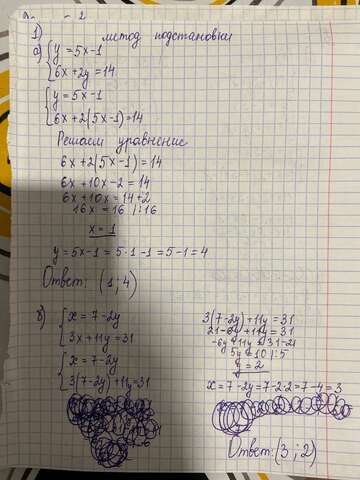 1) метод подстановки
а) { y = 5x-1
6x + 2y = 14
{ y = 5x-1
6x + 2(5x-1) = 14
Решаем уравнение
6x + 2(5x-1) = 14
6x + 10x - 2 = 14
6x + 10x = 14 + 2
16x = 16 /:16
x = 1
y = 5x-1 = 5·1-1 = 5-1 = 4
Ответ: (1; 4)
б) { x = 7-2y
3x + 11y = 31
{ x = 7-2y
3(7-2y) + 11y = 31
3(7-2y) + 11y = 31
21 - 6y + 11y = 31
-6y + 11y = 31-21
5y = 10 /:5
y = 2
x = 7-2y = 7-2·2 = 7-4 = 3
Ответ: (3; 2)